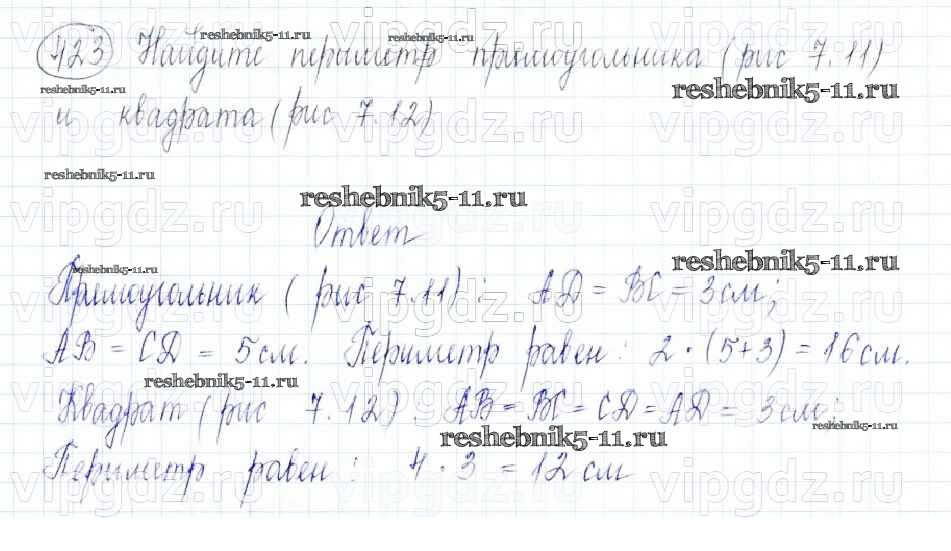 423 Найдите периметр прямоугольника (рис 7.11)
и квадрата (рис 7.12)
Ответ
Прямоугольник (рис 7.11): AD = BC = 3 см;
AB = CD = 5 см. Периметр равен: 2 · (5+3) = 16 см.
Квадрат (рис 7.12). AB = BC = CD = AD = 3 см;
Периметр равен: 4 · 3 = 12 см
reshebnik5-11.ru
reshebnik5-11.ru
reshebnik5-11.ru
reshebnik5-11.ru
reshebnik5-11.ru
reshebnik5-11.ru
reshebnik5-11.ru
reshebnik5-11.ru
reshebnik5-11.ru
reshebnik5-11.ru
reshebnik5-11.ru
vipgdz.ru vipgdz.ru vipgdz.ru
vipgdz.ru vipgdz.ru vipgdz.ru
vipgdz.ru vipgdz.ru vipgdz.ru
vipgdz.ru vipgdz.ru vipgdz.ru
vipgdz.ru vipgdz.ru vipgdz.ru
vipgdz.ru vipgdz.ru vipgdz.ru